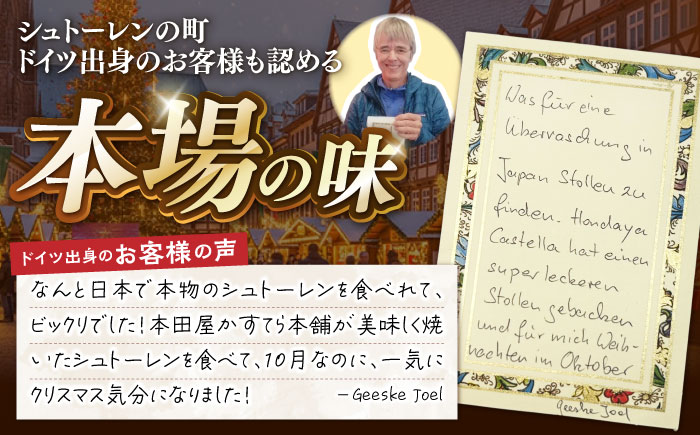 シュトーレンの町
ドイツ出身のお客様も認める
本場の味
ドイツ出身のお客様の声
なんと日本で本物のシュトーレンを食べれて、
ビックリでした！本田屋かすてら本舗が美味しく焼
いたシュトーレンを食べて、10月なのに、一気に
クリスマス気分になりました！
－Geeske Joel
Was für eine
Überraschung in
Japan Stollen zu
finden. Hondaya
Castella hat einen
super leckeren
Stollen gebacken
und für mich Weih-
nachten im Oktober
Geeske Joel